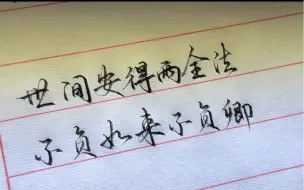 世间安得两全法
不负如来不负卿